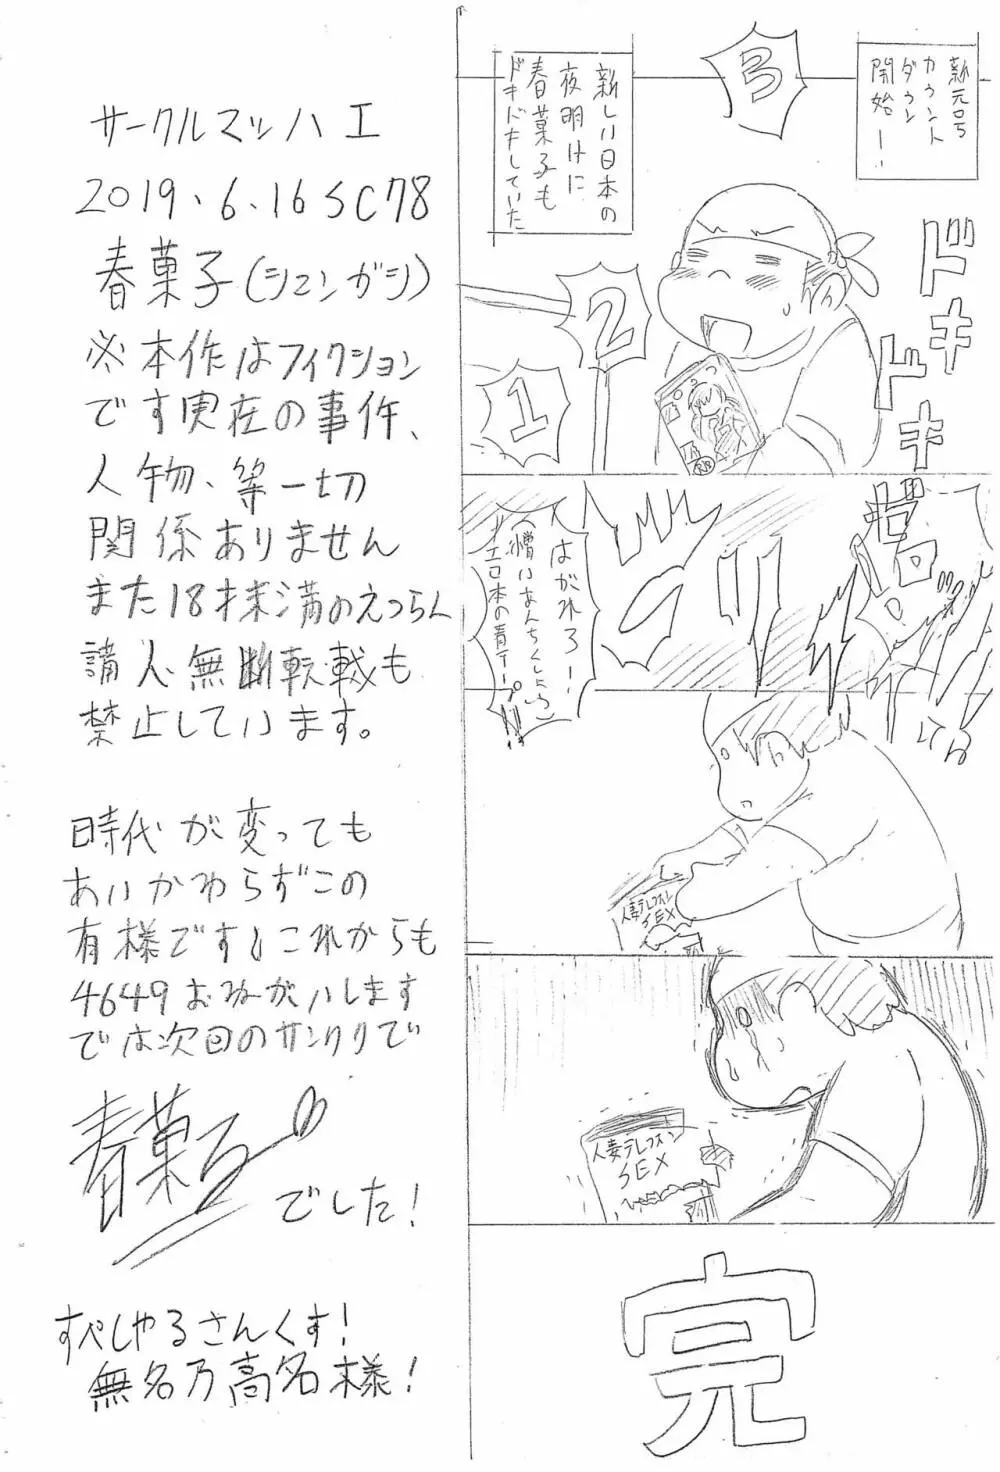 サークルマッハエ
2019.6.16 SC78
春菓子(シュンガシ)
※本作はフィクション
です実在の事件、
人物、等一切
関係ありません
また18才未満のえつらん
購入無断転載も
禁止しています。
時代が変っても
あいかわらずこの
有様です！これからも
4649おねがいします
では次回のサンクリで
春菓子
でした！
すぺしゃるさんくす！
無名乃高名様！
新元号
カウント
ダウン
開始ー！
3
新しい日本の
夜明けに
春菓子も
ドキドキしていた
2
1
ドキ
ドキ
はがれろー！
(憎いあんちくしょう)
エロ本の青テープ!!
人妻テレフォン
SEX
人妻テレフォン
SEX
完